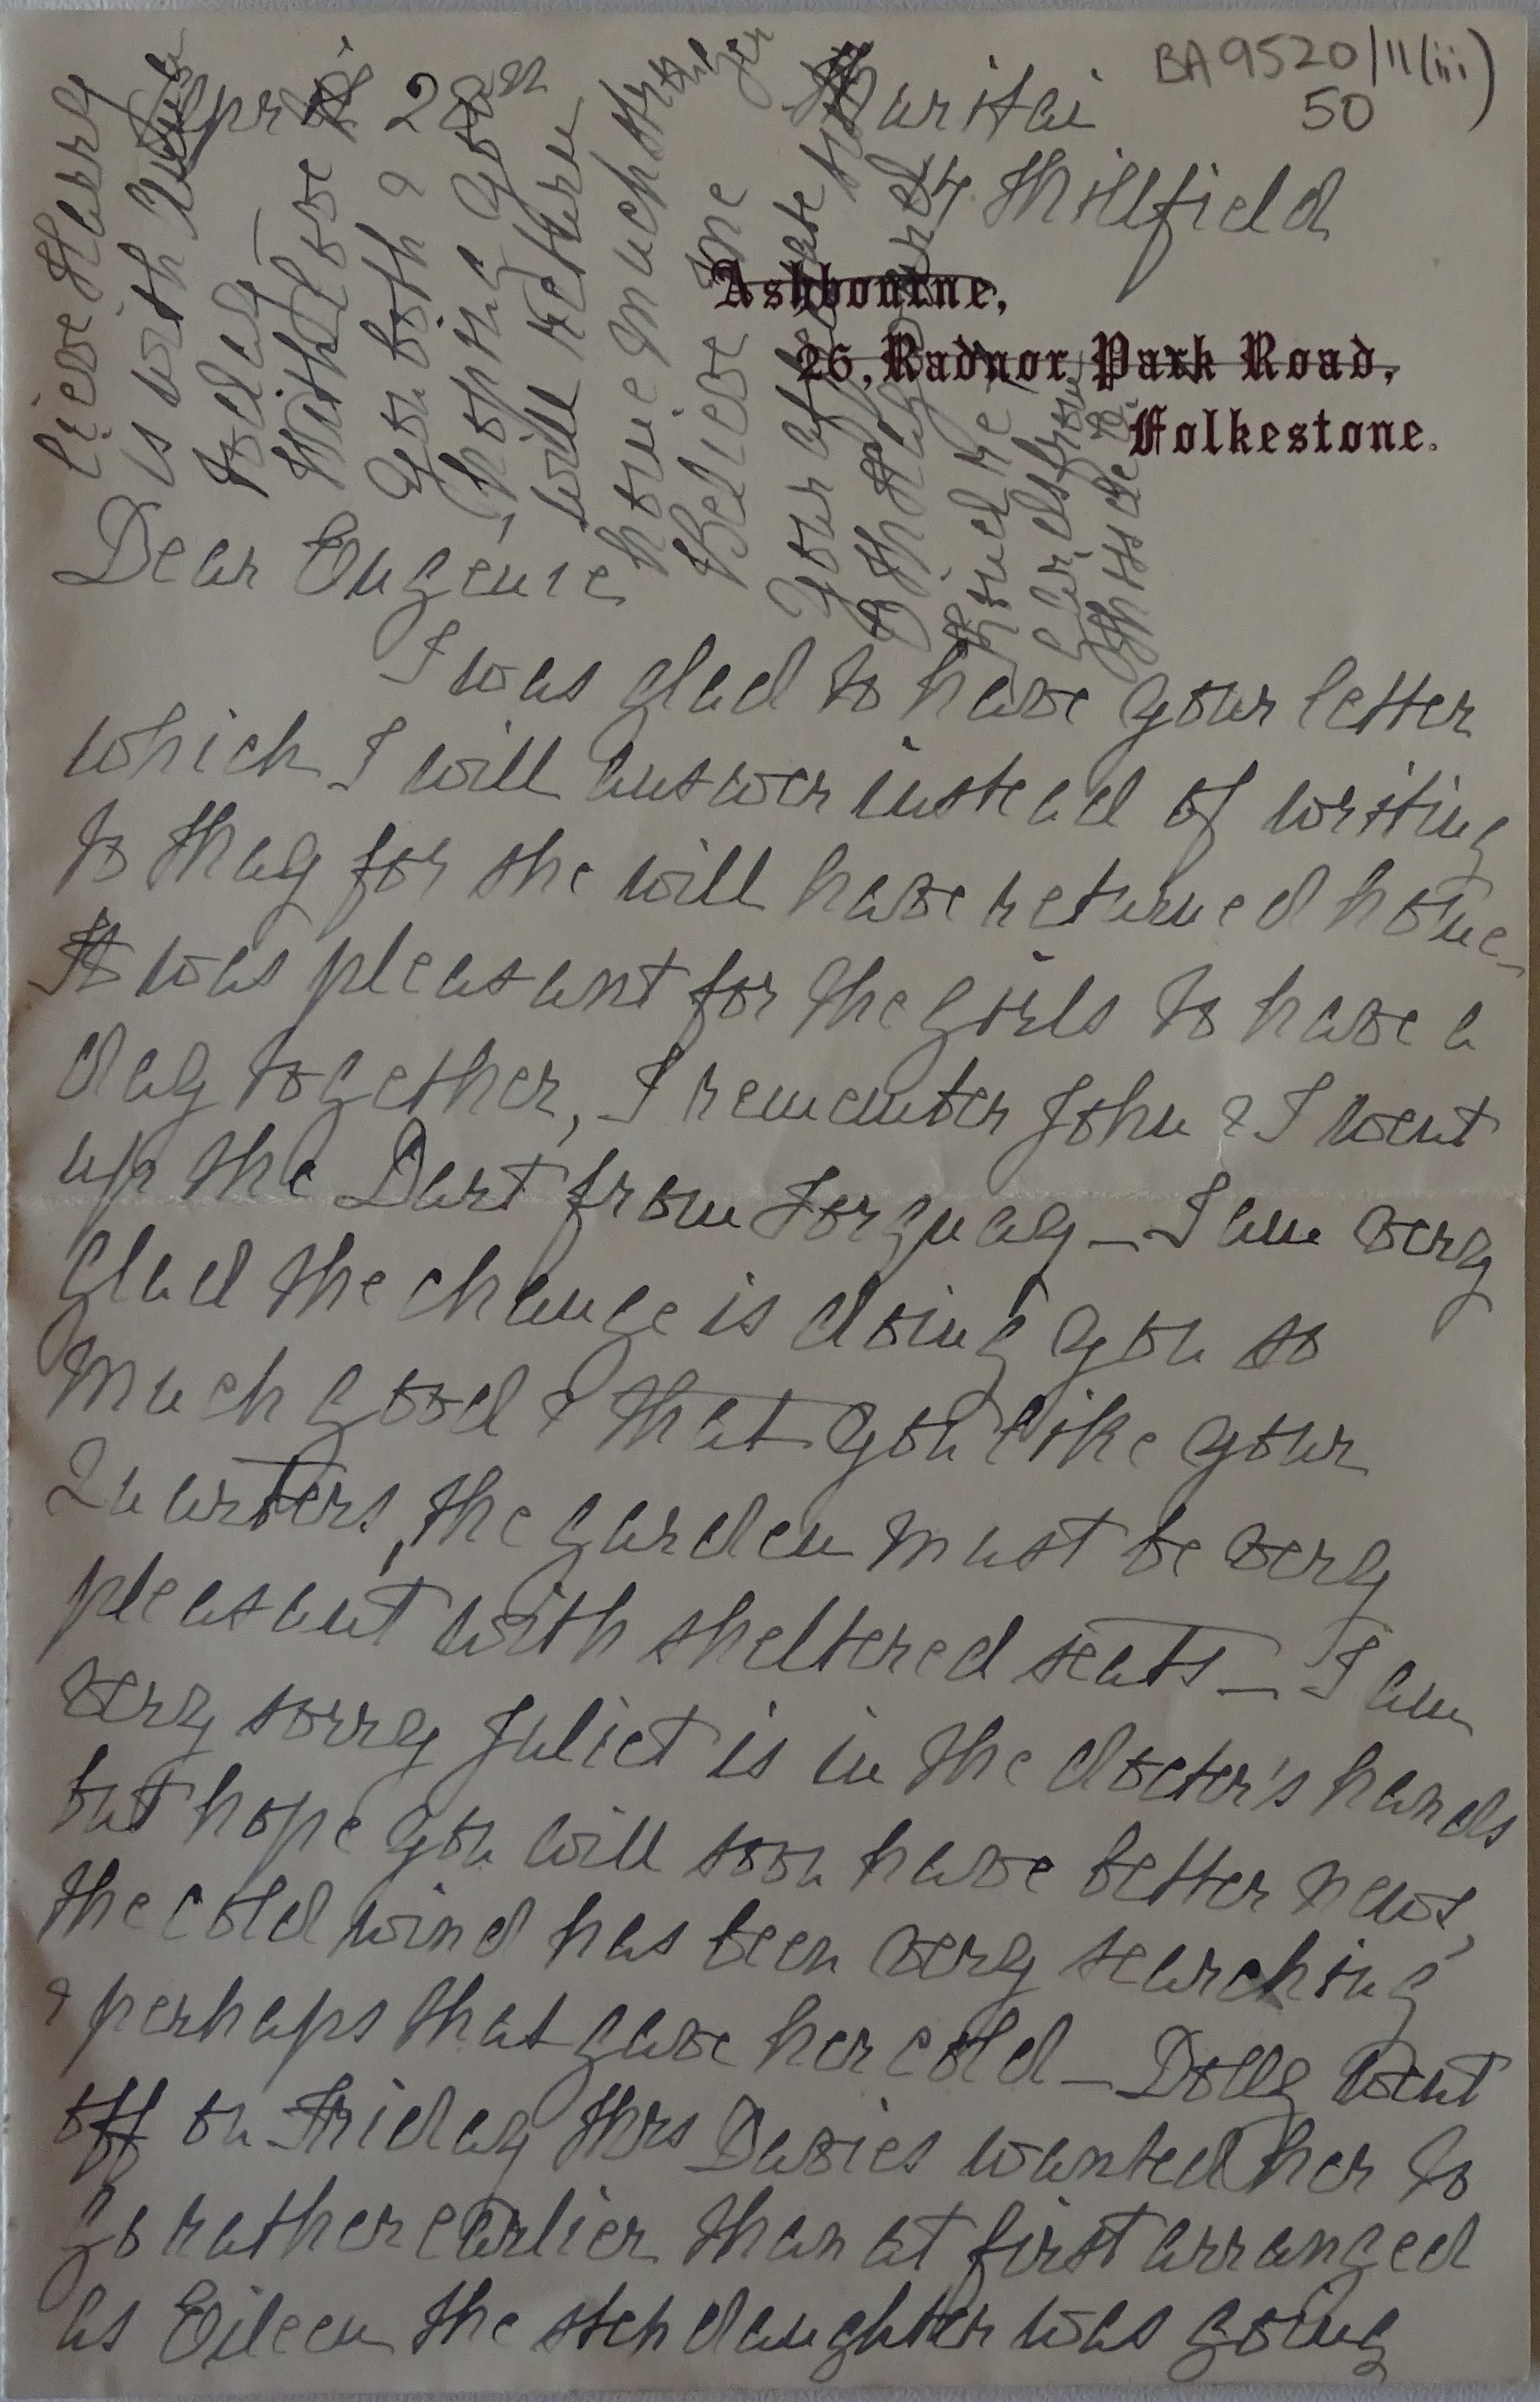 BA9520/11(iii)
50
April 20th
Maritai
14 Millfield
Ashbourne,
26, Radnor Park Road,
Folkestone.
Dear Eugénie
I was glad to have your letter
which I will answer instead of writing
to May for she will have returned home_
It was pleasant for the girls to have a
day together, I remember John & I went
up the Dart from Torquay_ I am very
glad the change is doing you so
much good & that you like your
Quarters, the garden must be very
pleasant with sheltered seats_ I am
very sorry Juliet is in the doctor's hands
but hope you will soon have better news,
the cold wind has been very searching
& perhaps that gave her cold_ Dolly went
off on Friday Mrs Davies wanted her to
go rather earlier than at first arranged
as Eileen the step daughter was going
lieve Harry
is with Aunt
Dolly_
With Love to
you both &
hoping you
will return
home much stronger
Believe me
your affectionate
S M Haggard
Kind re
gards from
Miss de B.